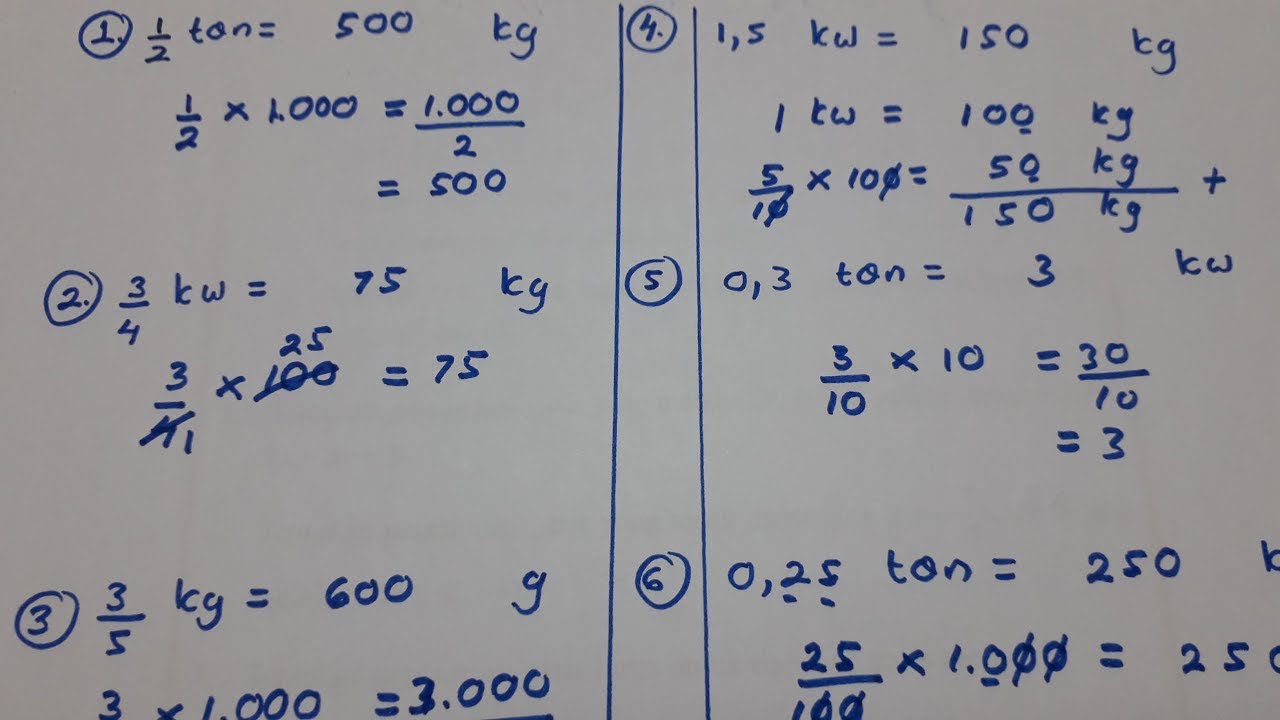 1. 1/2 ton = 500 kg
1/2 x 1.000 = 1.000/2
= 500
2. 3/4 kw = 75 kg
25
3/4 1 x 100 = 75
3 3/5 kg = 600 g
3 x 1.000 = 3.000
4. 1,5 kw = 150 kg
1 kw = 100 kg
5/10 x 100 = 50 kg +
150 kg
5 0,3 ton = 3 kw
3/10 x 10 = 30/10
= 3
6 0,25 ton = 250 k
25/100 x 1.000 = 250